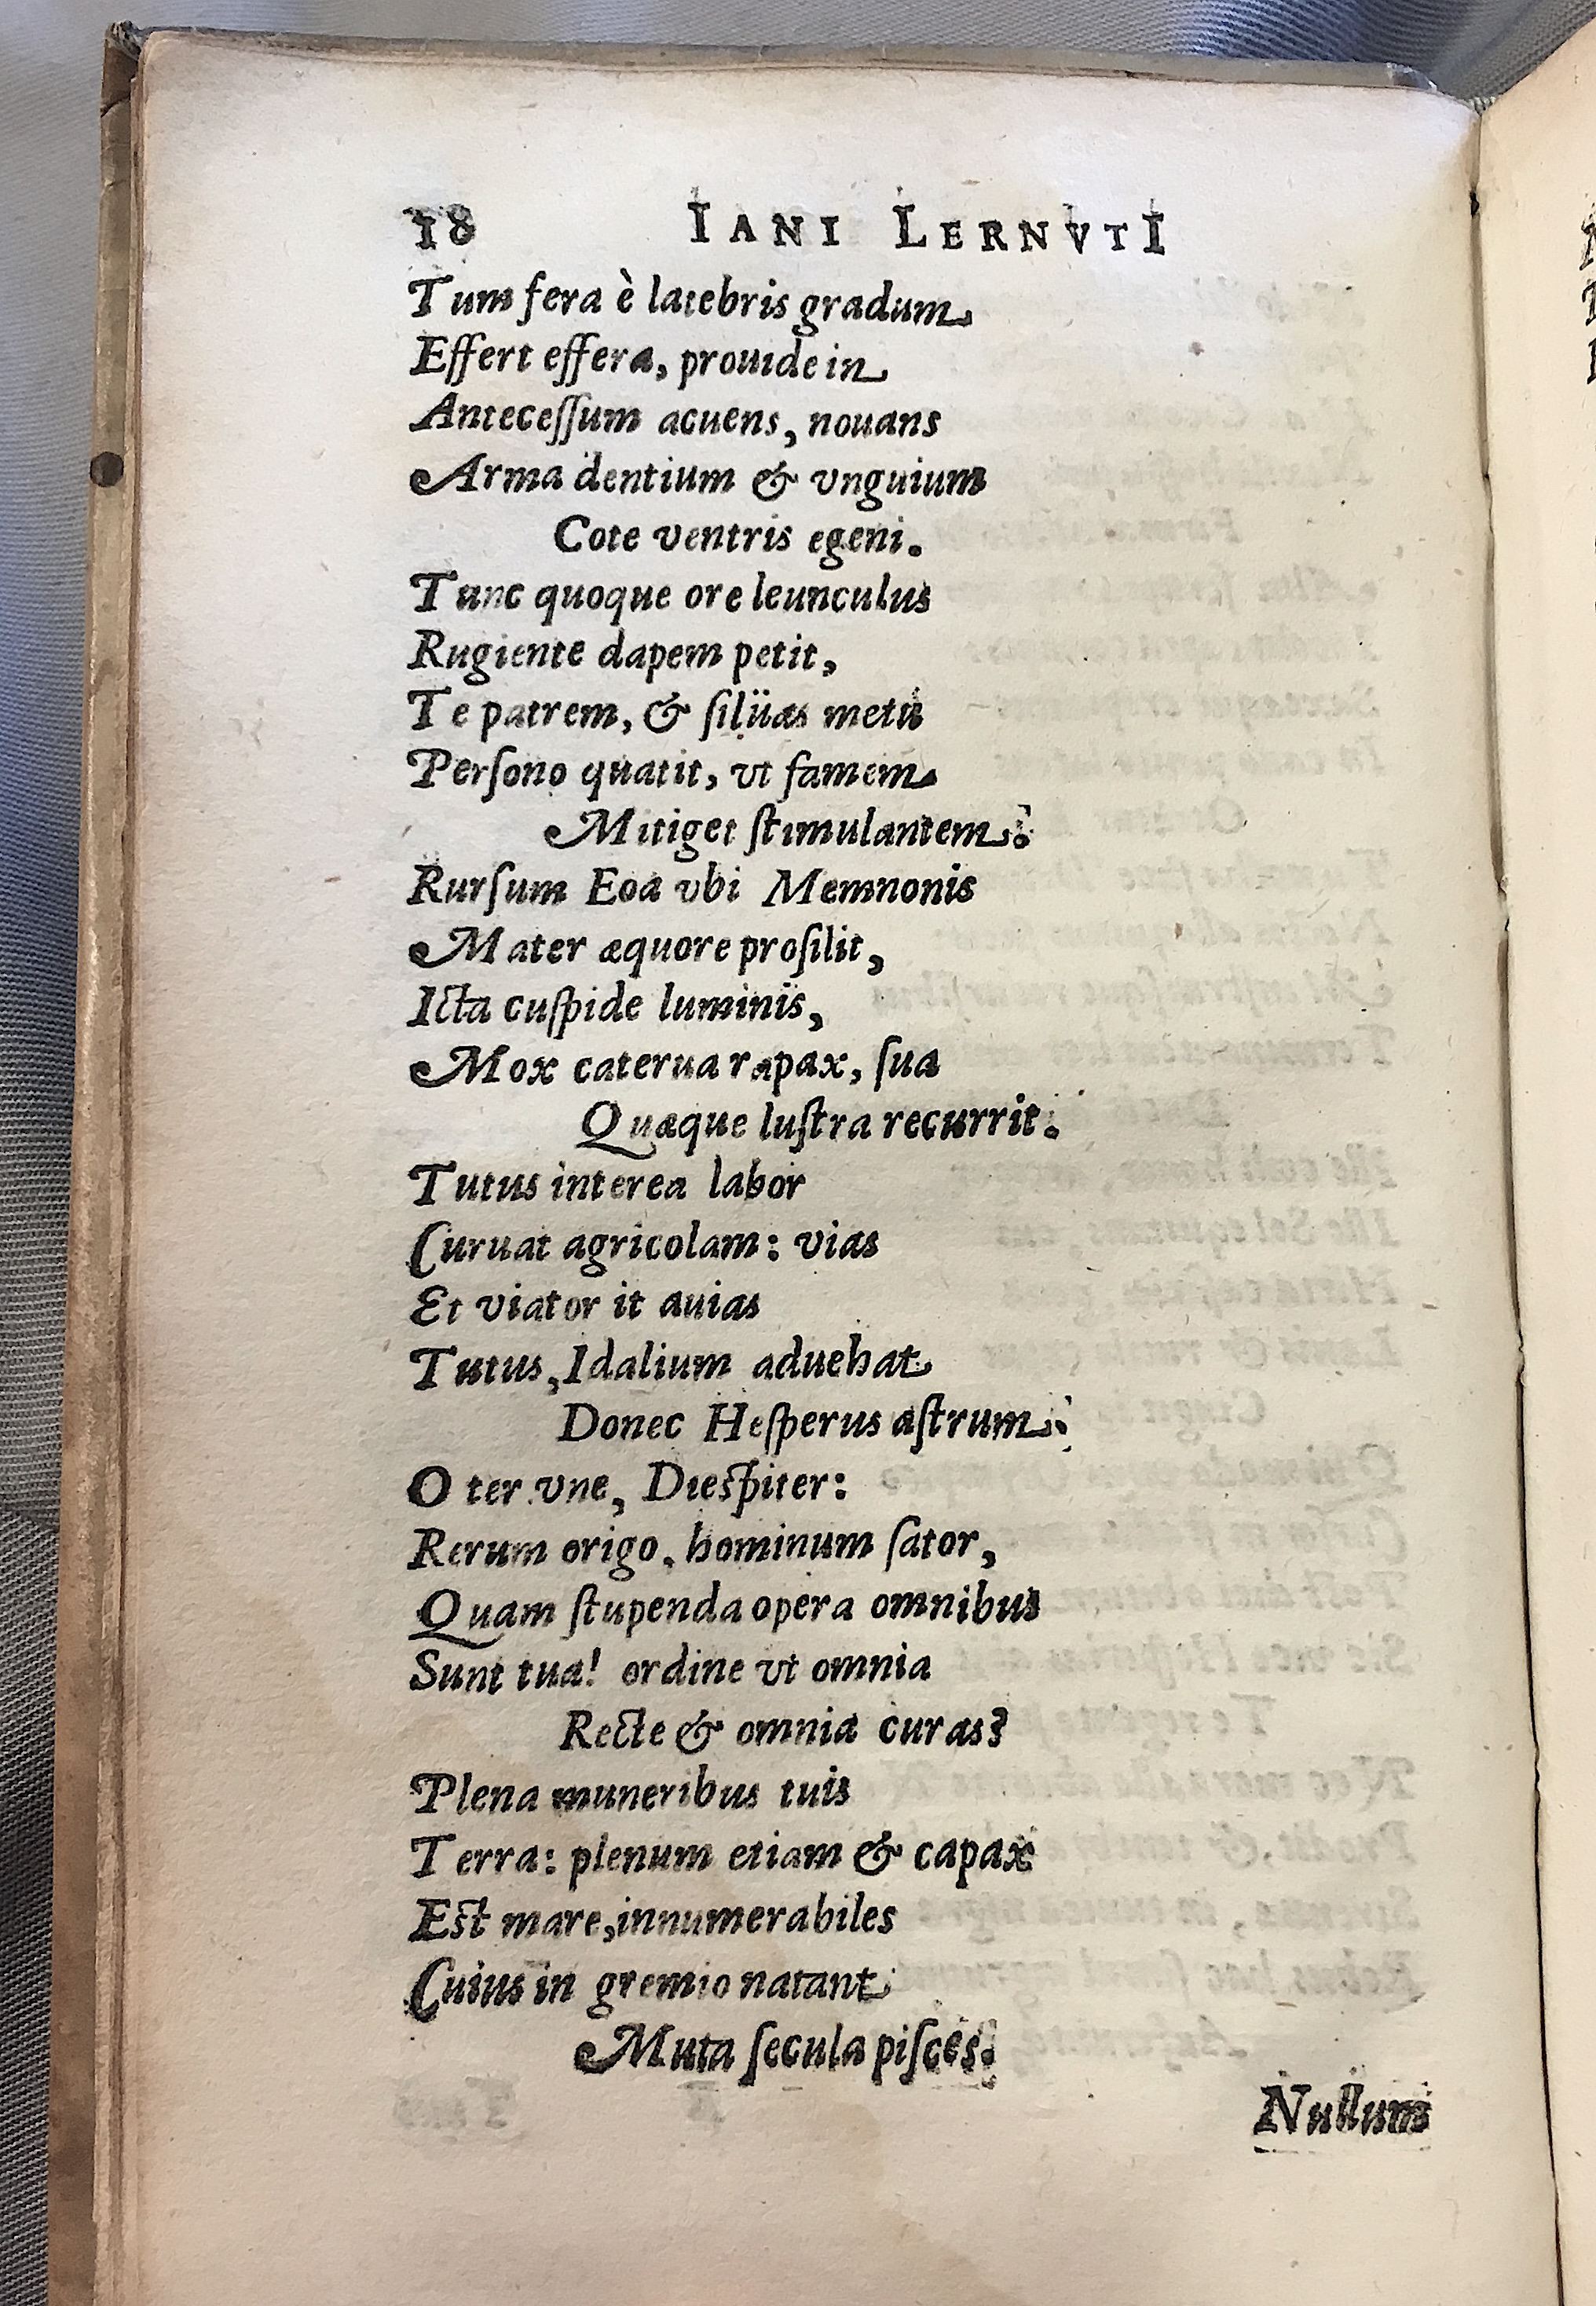 18 IANI LERNVTI
Tum fera è latebris gradum
Effert effera, prouide in
Anteceſſum acuens, nouans
Arma dentium & vnguium
Cote ventris egeni.
Tunc quoque ore leunculus
Rugiente dapem petit,
Te patrem, & ſilüas metu
Perſono quatit, vt famem
Mitiget ſtimulantem.
Rurſum Eoa vbi Memnonis
Mater æquore proſilit,
Icta cuſpide luminis,
Mox caterua rapax, ſua
Quæque luſtra recurrit.
Tutus interea labor
Curuat agricolam: vias
Et viator it auias
Tutus, Idalium aduehat
Donec Heſperus aſtrum.
O ter vne, Dieſpiter:
Rerum origo, hominum ſator,
Quam ſtupenda opera omnibus
Sunt tua! ordine vt omnia
Recte & omnia curas?
Plena muneribus tuis
Terra: plenum etiam & capax
Eſt mare, innumerabiles
Cuius in gremio natant
Muta ſecula piſces.
Nullum